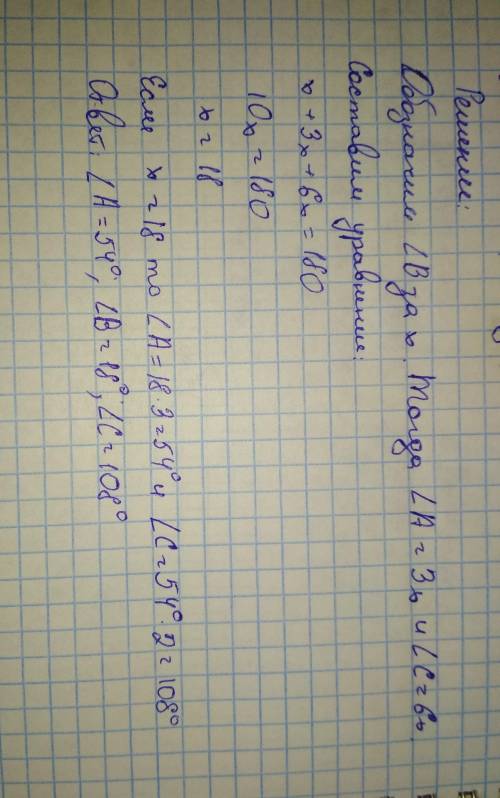 Решение:
Обозначим ∠B за x. Тогда ∠A = 3x и ∠C = 6x.
Составим уравнение:
x + 3x + 6x = 180
10x = 180
x = 18
Если x = 18 то ∠A = 18·3 = 54° и ∠C = 54°·2 = 108°
Ответ: ∠A = 54°, ∠B = 18°, ∠C = 108°